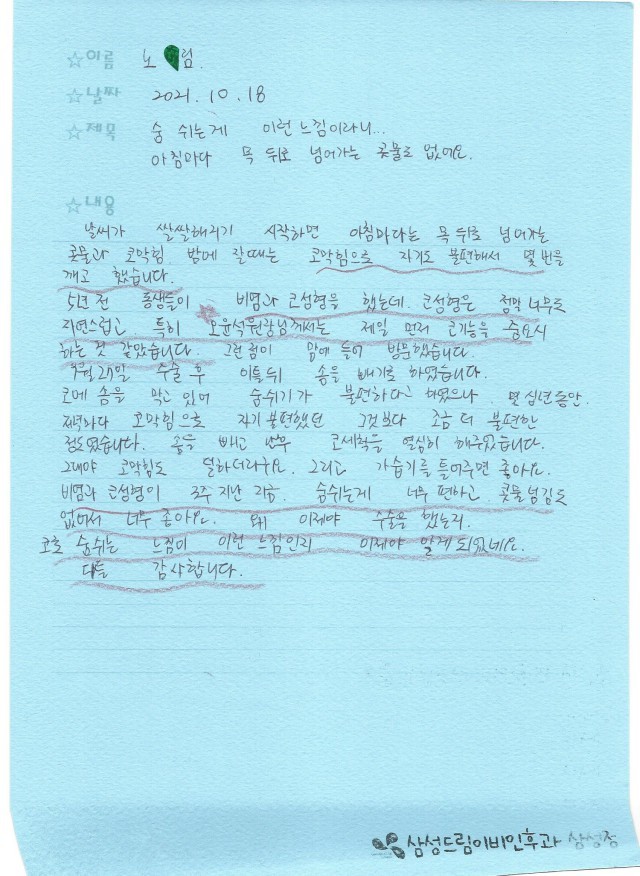 ☆이름 노 림.
☆날짜 2021.10.18
☆제목 숨 쉬는게 이런 느낌이라니...
아침마다 목 뒤로 넘어가는 콧물도 없어요.
☆내용
날씨가 쌀쌀해지기 시작하면 아침마다는 목 뒤로 넘어가는
콧물과 코막힘. 밤에 잘때는 코막힘으로 자기도 불편해서 몇 번을
깨고 했습니다.
5년 전 동생들이 비염과 코성형을 했는데. 코성형은 정말 너무도
자연스럽고. 특히 오윤석원장님께서는 제일 먼저 코기능을 중요시
하는 것 같았습니다. 그런 점이 맘에 들어 방문했습니다.
9월 27일 수술 후 이틀뒤 솜을 빼기로 하였습니다.
코에 솜을 막고 있어 숨쉬기가 불편하다고 하였으나. 몇 십년동안.
저녁마다 코막힘으로 자기 불편했던 그것보다 조금 더 불편한
정도였습니다. 솜을 빼고 난후 코세척을 열심히 해주었습니다.
그래야 코막힘도 덜하더라구요. 그리고 가습기를 틀어주면 좋아요.
비염과 코성형이 3주 지난 지금. 숨쉬는게 너무 편하고 콧물 넘김도
없어서 너무 좋아요. 왜 이제야 수술을 했는지.
코로 숨쉬는 느낌이 이런 느낌인지 이제야 알게 되었네요.
다들 감사합니다.
삼성드림이비인후과 삼성점